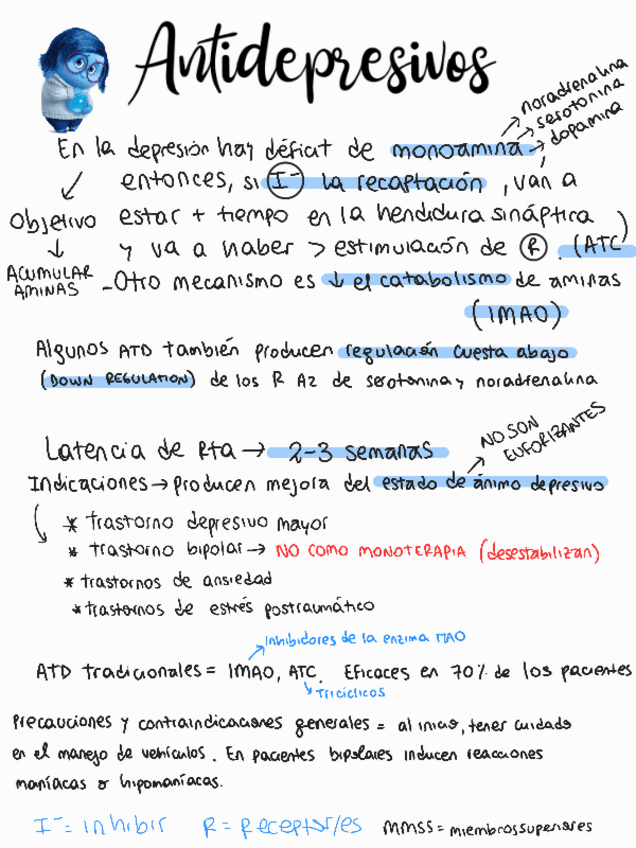 Antidepresivos
noradrenalina
serotonina
dopamina
En la depresión hay déficit de monoamina
entonces, si I⁻ la recaptación, van a
Objetivo estar + tiempo en la hendidura sináptica
ACUMULAR AMINAS
y va a haber > estimulación de R. (ATC)
- Otro mecanismo es ↓ el catabolismo de aminas
(IMAO)
Algunos ATD también producen regulación cuesta abajo
(DOWN REGULATION) de los R A2 de serotonina y noradrenalina
Latencia de Rta → 2-3 semanas
NO SON
EUFORIZANTES
Indicaciones → producen mejora del estado de ánimo depresivo
* trastorno depresivo mayor
* trastorno bipolar → NO COMO MONOTERAPIA (desestabilizan)
* trastornos de ansiedad
* trastornos de estrés postraumático
inhibidores de la enzima MAO
ATD tradicionales = IMAO, ATC. Eficaces en 70% de los pacientes
Tricíclicos
Precauciones y contraindicaciones generales = al inicio, tener cuidado
en el manejo de vehículos. En pacientes bipolares inducen reacciones
maníacas o hipomaníacas.
I⁻ = inhibir R = Receptor/es MMSS = miembros superiores